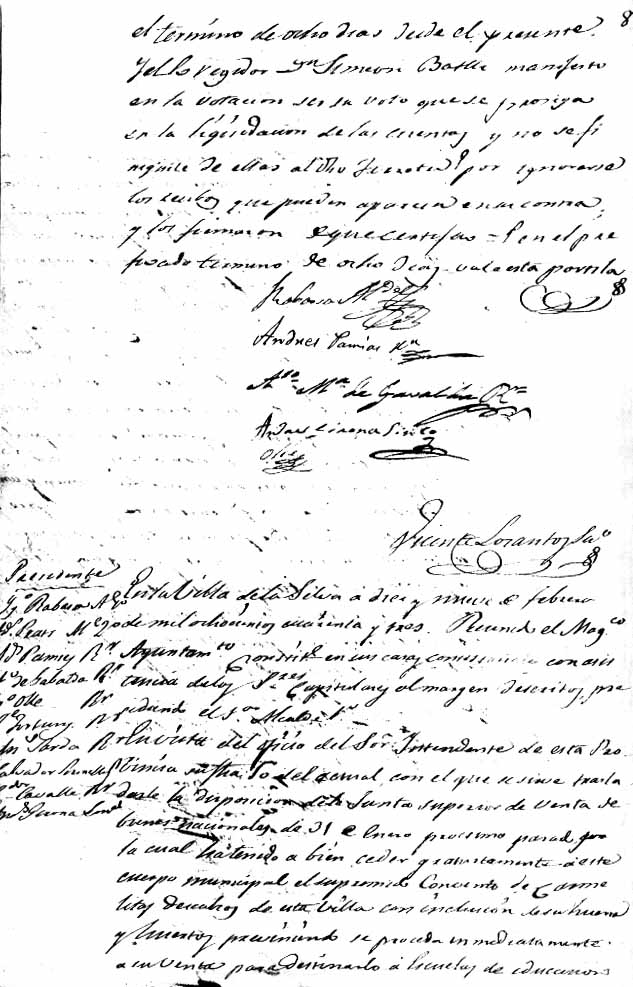 8
el término de ocho dias desde el presente.
Y el Sr regidor Dn Simeon Batlle manifestó
en la votacion ser su voto que se prosiga
en la liquidacion de las cuentas y no se fi
niquite de ellas al dho por ignorarse
los que puedan aparecer en su contra,
y los firmaron de que certifico = Y en el pre
fixado termino de ocho dias vale esta postila
Rabasa
Andres Pamies Rr
Ma de Gavaldá Rr
Andres Sindco
Olle
Vicente Srio
Presidente
En la Villa de la Selva á diez y nueve de febrero
de mil ochocientos cuarenta y tres. Reunido el Magco
Ayuntamto Constitl en sus casas consistoriales con asis
tencia de los Sres Capitulares al margen descritos pre
sidiendo el Sor Alcalde
Rabasa
Prats
Pamies Rr
de Gabalda Rr
Olle Rr
Fortuny Rr
Sarda Rr
Salvador
Cavalle Rr
En vista del oficio del Sor Intendente de esta Pro
vincia su fha 10 del actual con el que se sirve trasla
darle la disposicion de la Junta superior de venta de
bienes nacionales de 31 de Enero proximo pasado por
la cual ha tenido á bien ceder gratuitamente á este
cuerpo municipal el suprimido Convento de Carme
litas descalzos de esta Villa con inclusion de su huerta
y huertos previniendo se proceda inmediatamente
a su venta para destinarlo á Escuelas de educacion